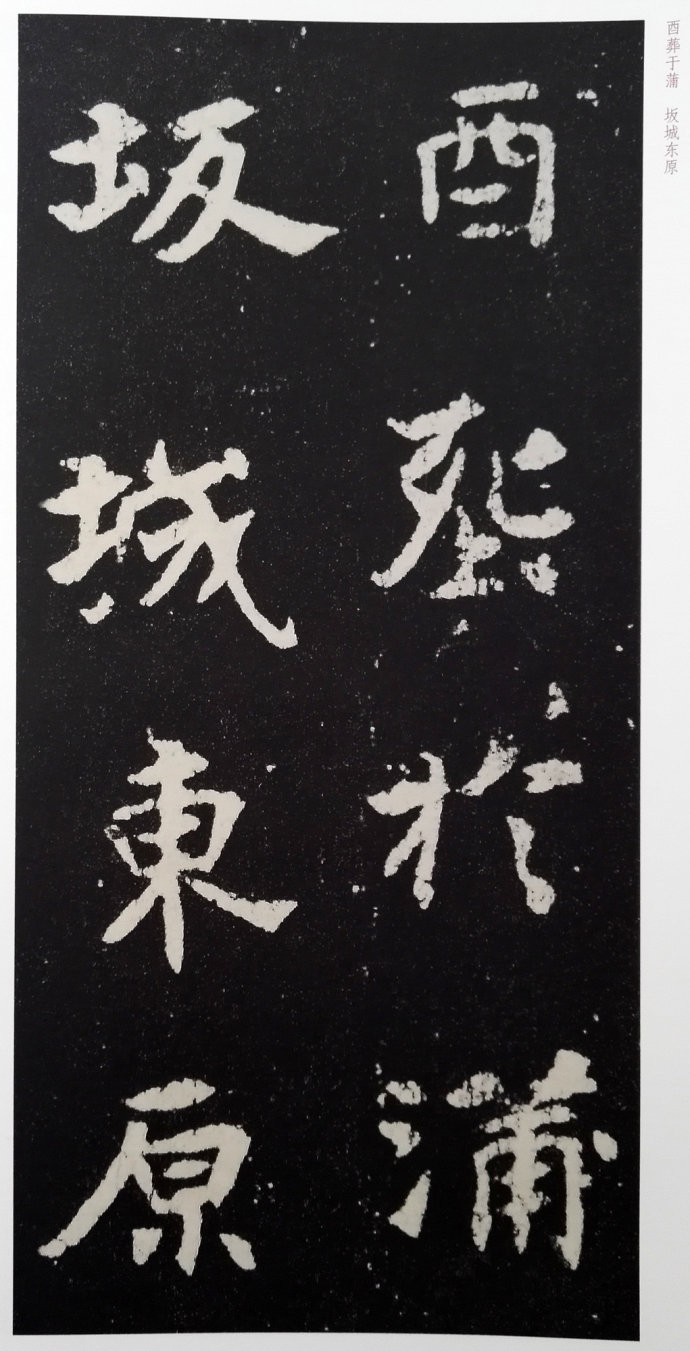 酉葬于蒲 坂城东原
酉葬於蒲
坂城東原